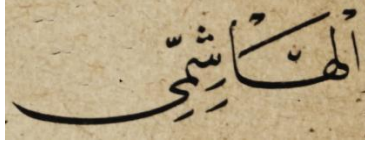 اْلهَاْشِمِّي